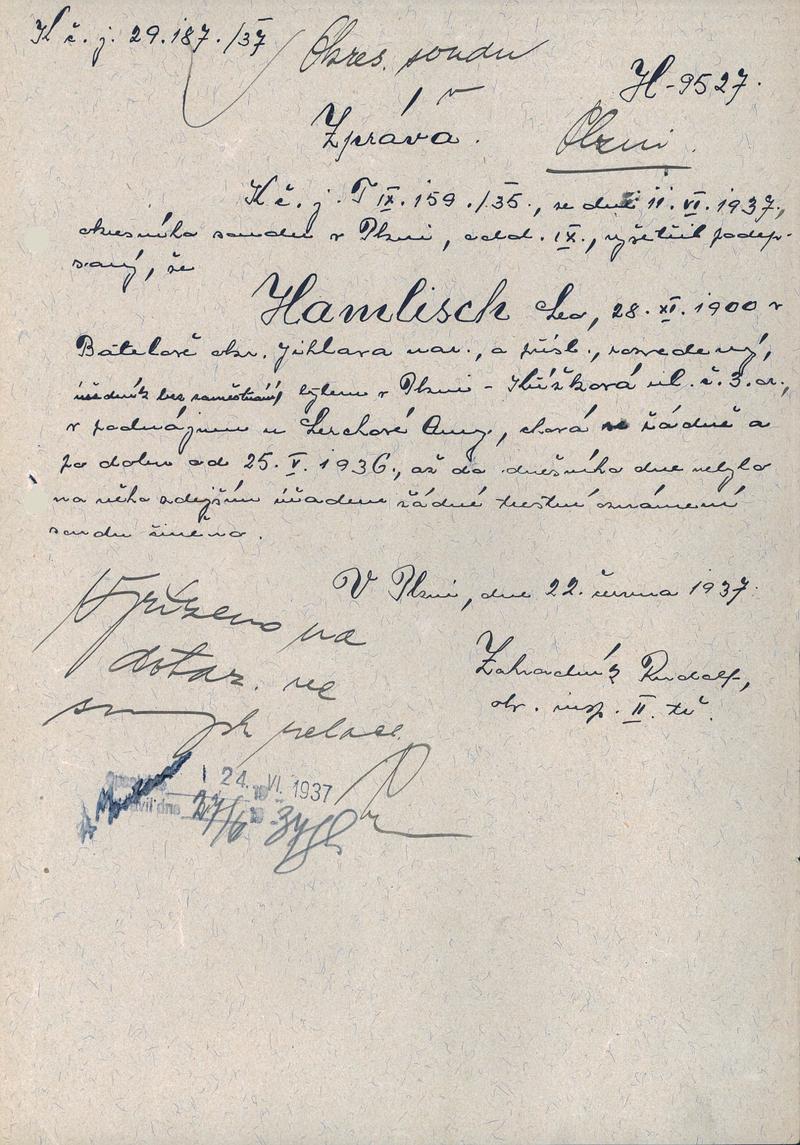 K č. j. 29.187./37
Okres. soudu
v
H-9527.
Zpráva.
Plzni
K č. j. T IX. 159./35., ze dne 11. VI. 1937,
okresního soudu v Plzni, odd. IX., vyšetřil podep-
saný, že
Hamlisch Leo, 28. XI. 1900 v
Batelově okr. Jihlava nar., a přísl., rozvedený,
úředník bez zaměstnání, bytem v Plzni - Křížková ul. č. 3. or.,
v podnájmu u Lerchové Anny, chová se řádně a
po dobu od 25. V. 1936., až do dnešního dne nebylo
na něho zdejším úřadem žádné trestní oznámení
soudu činěno.
V Plzni, dne 22. června 1937.
Vyřízeno na
dotaz. ve
smysle relace
Zahradník Rudolf,
obv. insp. II. tř.
24. VI. 1937
27/6